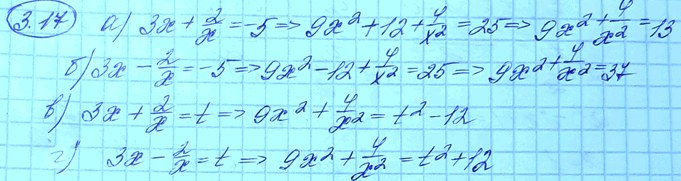 3.17 а) 3x + 2/x = -5 => 9x² + 12 + 4/x² = 25 => 9x² + 4/x² = 13
б) 3x - 2/x = -5 => 9x² - 12 + 4/x² = 25 => 9x² + 4/x² = 37
в) 3x + 2/x = t => 9x² + 4/x² = t² - 12
г) 3x - 2/x = t => 9x² + 4/x² = t² + 12